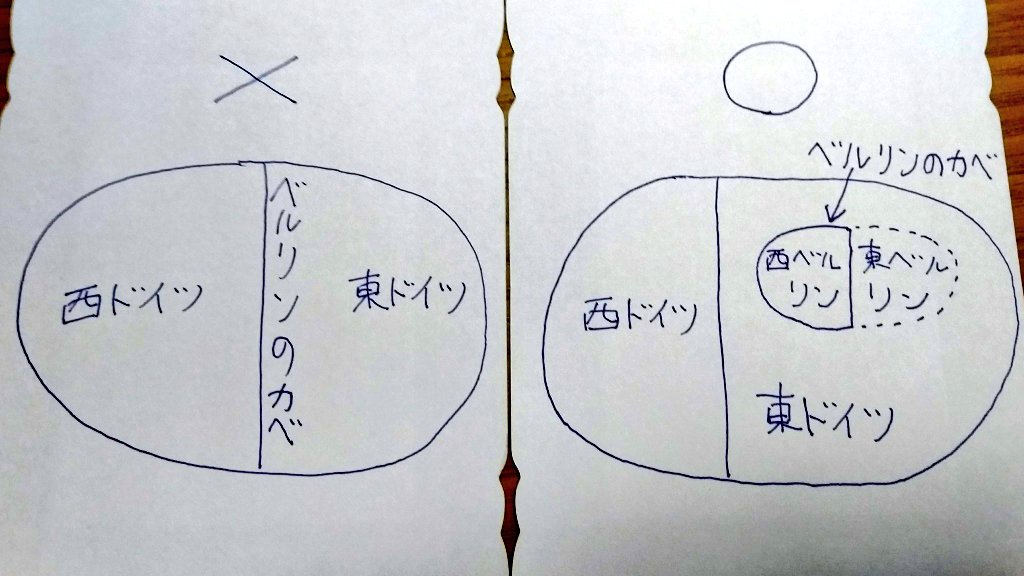 西ドイツ
ベルリンのカベ
東ドイツ
ベルリンのカベ
西ベル
リン
東ベル
リン
西ドイツ
東ドイツ